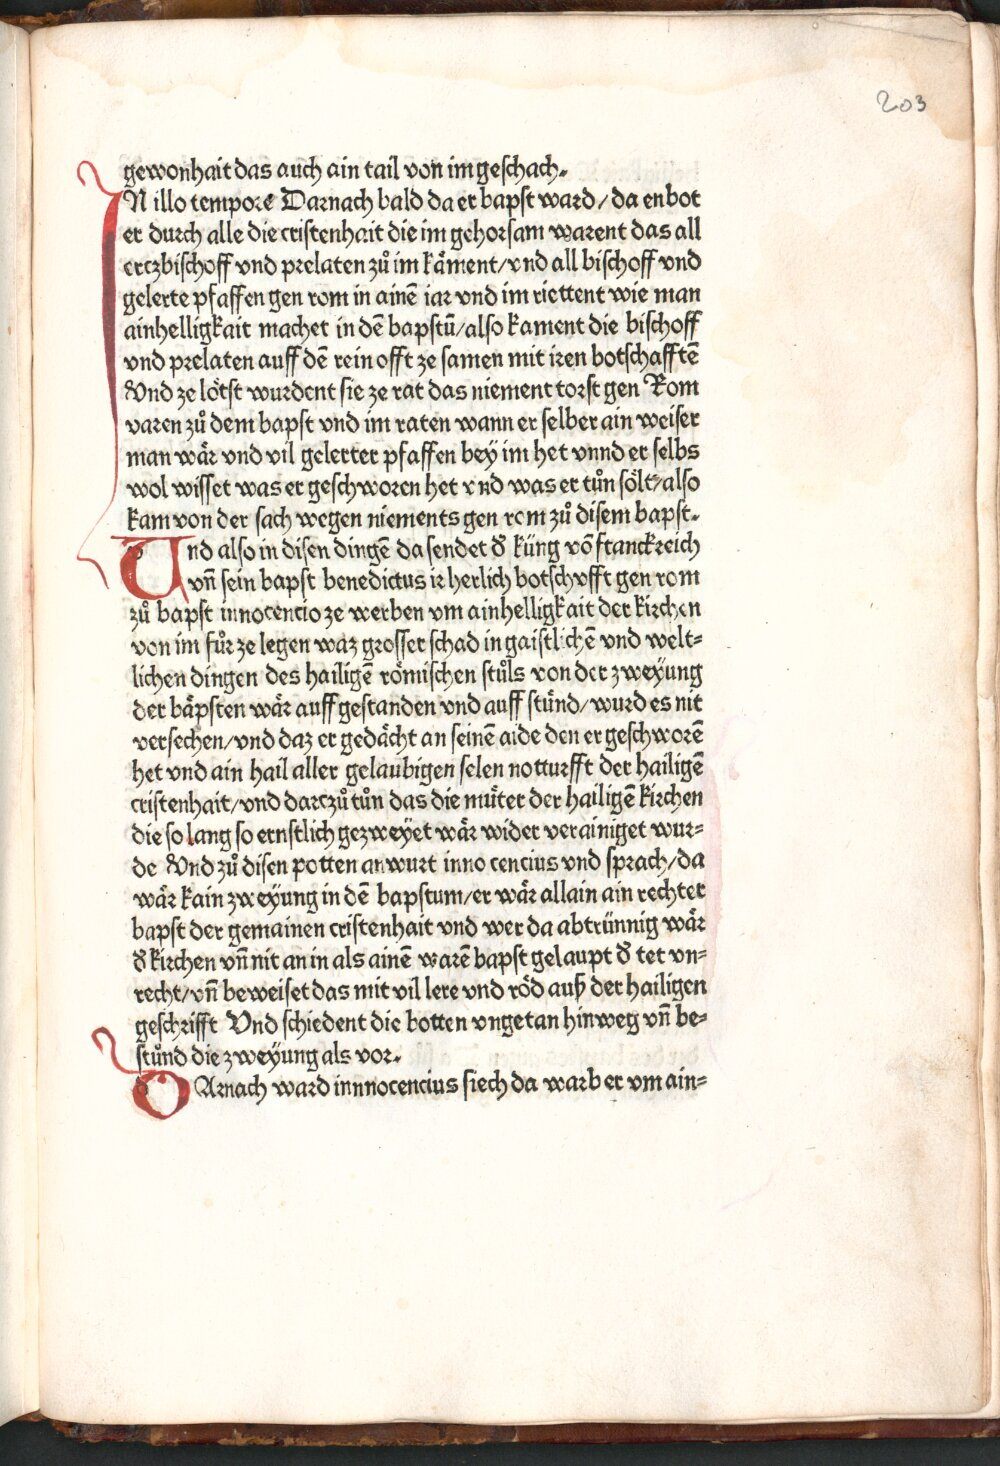 203
gewonhait das auch ain tail von im geschach.
IN illo tempore Darnach bald da er bapst ward/ da enbot
er durch alle die cristenhait die im gehorsam warent das all
erczbischoff vnd prelaten zů im kåment/vnd all bischoff vnd
gelerte pfaffen gen rom in ainē iar vnd im riettent wie man
ainhelligkait machet in dē bapstū/also kament die bischoff
vnd prelaten auff dē rein offt ze samen mit iren botschafftē
Vnd ze lötst wurdent sie ze rat das niement torst gen Rom
varen zů dem bapst vnd im raten wann er selber ain weiser
man wår vnd vil gelerter pfaffen bey im het vnnd er selbs
wol wisset was er geschworen het vnd was er tůn sölt/also
kam von der sach wegen niements gen rom zů disem bapst.
Und also in disen dingē da sendet d̄ küng vō franckreich
vn̄ sein bapst benedictus ir herlich botschafft gen rom
zů bapst innocencio ze werben vm ainhelligkait der kirchen
von im für ze legen waz grosser schad in gaistlichē vnd welt=
lichen dingen des hailigē römischen stůls von der zweyüng
der båpsten wår auff gestanden vnd auff stünd/wurd es nit
versechen/vnd daz er gedåcht an seinē aide den er geschworē
het vnd ain hail aller gelaubigen selen notturfft der hailigē
cristenhait/vnd darczů tůn das die můter der hailigē kirchen
die so lang so ernstlich gezweyet wår wider verainiget wur=
de Vnd zů disen potten anwurt inno cencius vnd sprach/da
wår kain zweyüng in dē bapstum/er wår allain ain rechter
bapst der gemainen cristenhait vnd wer da abtrünnig wår
d̄ kirchen vn̄ nit an in als ainē warē bapst gelaupt d̄ tet vn=
recht/vn̄ beweiset das mit vil lere vnd röd auß der hailigen
geschrifft Vnd schiedent die botten vngetan hinweg vn̄ be=
stůnd die zweyüng als vor.
DArnach ward innnocencius siech da warb er vm ain=